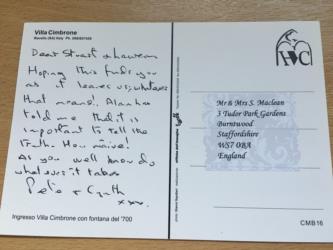 Villa Cimbrone
Dear Stuart & Laureen
Hoping this finds you
as it leaves us, whatever
that means. Alan has
told me that it is
important to tell the
truth. How naive!
As you well know do
whatever it takes
Pete & Cynth
xxx.
Ingresso Villa Cimbrone con fontana del '700
VC
Mr & Mrs S. Maclean
3 Tudor Park Gardens
Burntwood
Staffordshire
WS7 0BA
England
CMB16